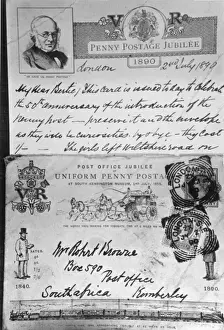 V R
PENNY POSTAGE JUBILEE
1890
London 2nd July 1890
My dear Bertie, This card is issued today to celebrate
the 50th anniversary of the introduction of the
Penny post - preserve it and the envelope
as they will be curiosities by & bye - they cost
1/- The girls left Wiltshire road on
POST OFFICE JUBILEE
OF
UNIFORM PENNY POSTAGE
AT SOUTH KENSINGTON MUSEUM, 2ND JULY, 1890.
V R
Mr Robert Browne
Box 590
Post office
South Africa Kimberley
1840. 1890.